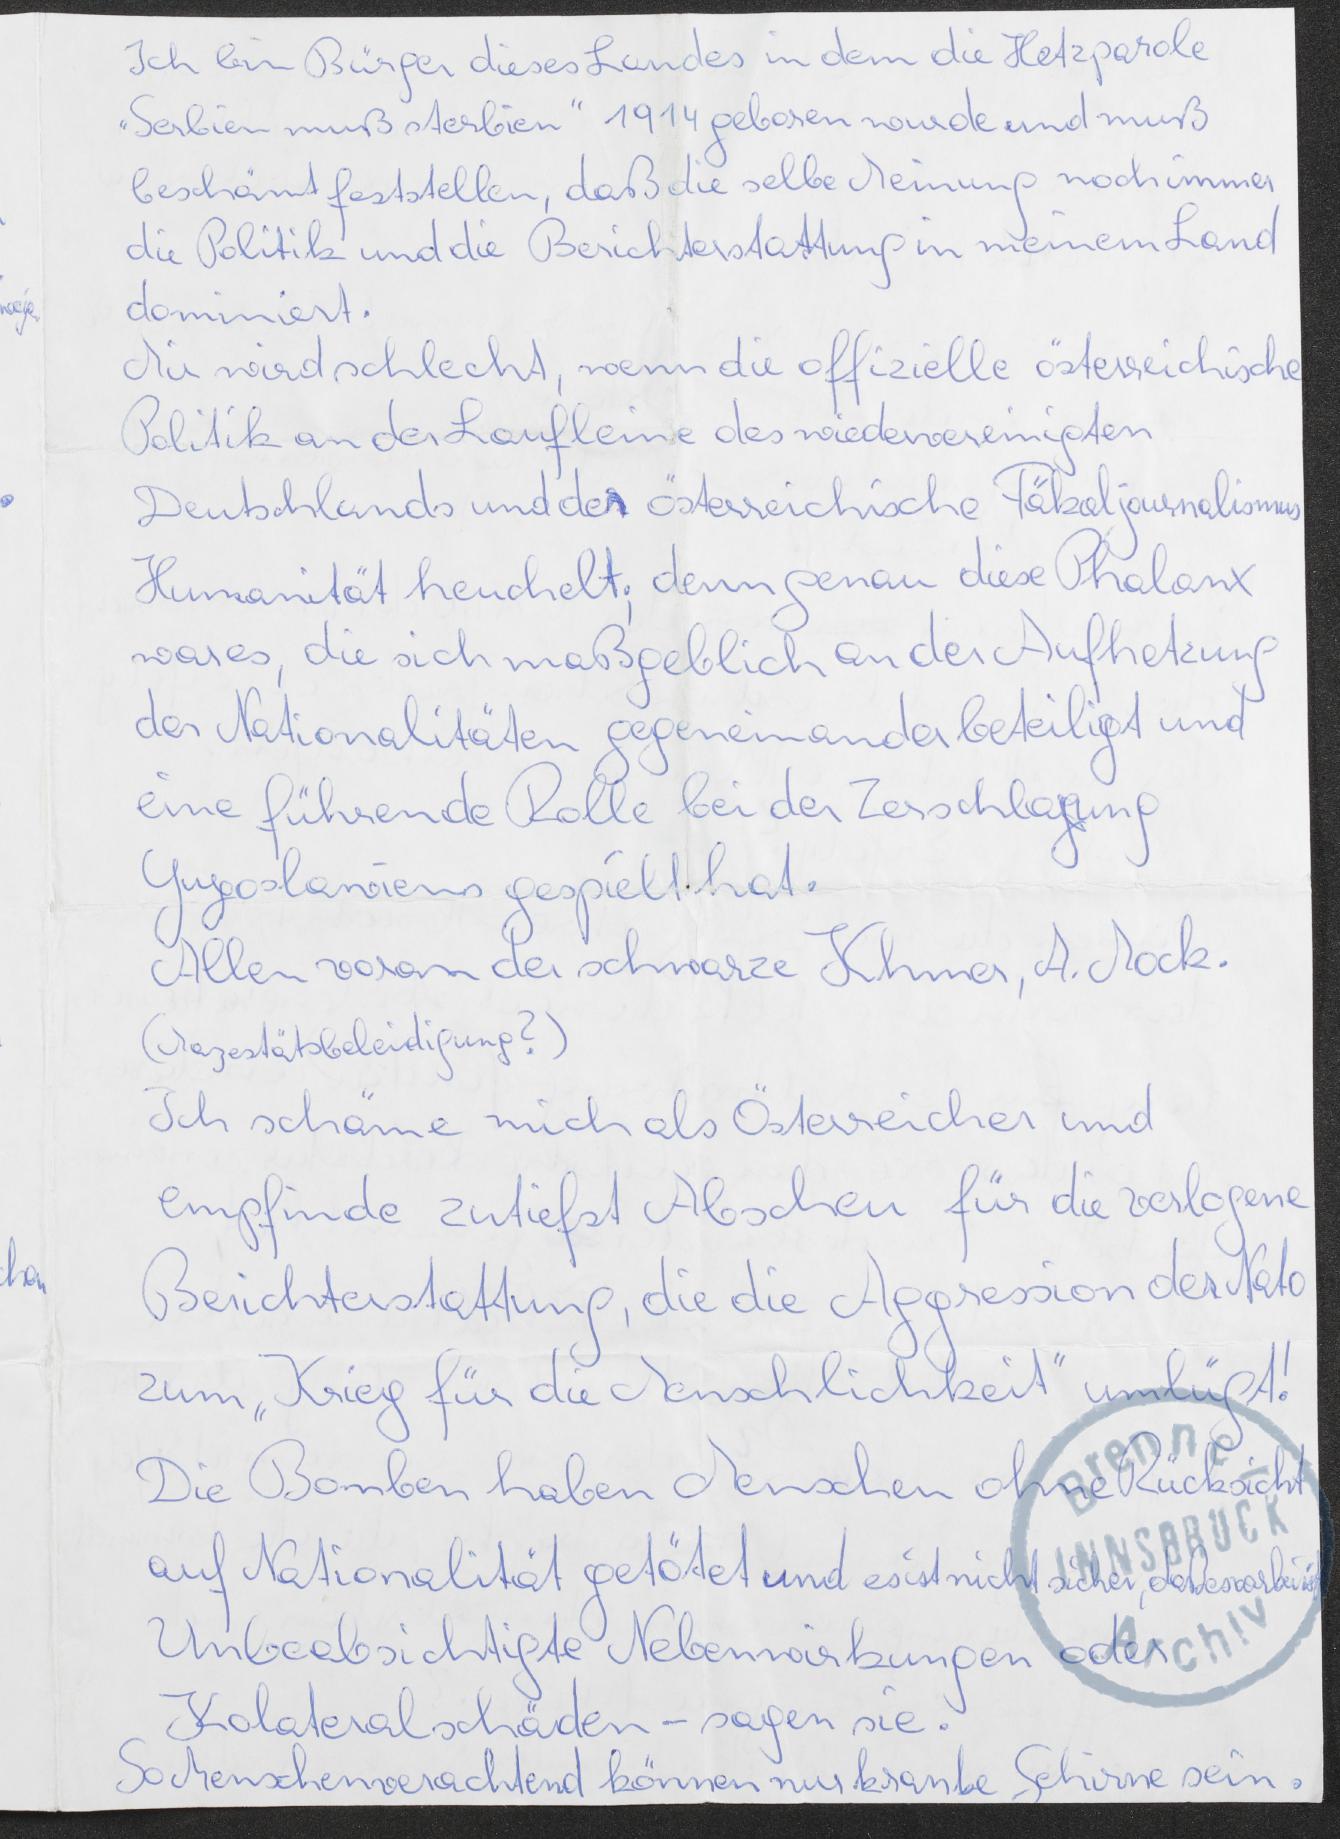 Ich bin Bürger dieses Landes in dem die Hetzparole
"Serbien muß sterbien" 1914 geboren wurde und muß
beschämt feststellen, daß die selbe Meinung noch immer
die Politik und die Berichterstattung in meinem Land
dominiert.
Mir wird schlecht, wenn die offizielle österreichische
Politik an der Laufleine des wiedervereinigten
Deutschlands und der österreichische Fäkaljournalismus
Humanität heuchelt; denn genau diese Phalanx
war es, die sich maßgeblich an der Aufhetzung
der Nationalitäten gegeneinander beteiligt und
eine führende Rolle bei der Zerschlagung
Yugoslawiens gespielt hat.
Allen voran der schwarze Khmer, A. Mock.
(Mazestätsbeleidigung?)
Ich schäme mich als Österreicher und
empfinde zutiefst Abscheu für die verlogene
Berichterstattung, die die Aggression der Nato
zum „Krieg für die Menschlichkeit" umlügt!
Die Bomben haben Menschen ohne Rücksicht
auf Nationalität getötet und es ist nicht sicher, daß es vorbei ist
Unbeabsichtigte Nebenwirkungen oder
Kolateralschäden – sagen sie.
So Menschenverachtend können nur kranke Gehirne sein.
Brenner
INNSBRUCK
Archiv